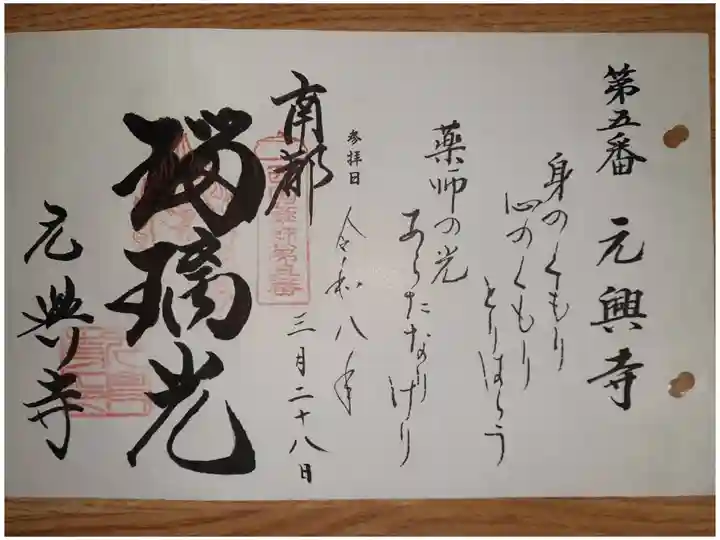 第五番 元興寺
身のくもり
心のくもり
とりはらう
薬師の光
あらたなり
けり
参拝日 令和八年
三月二十八日
南都
瑠璃光
元興寺